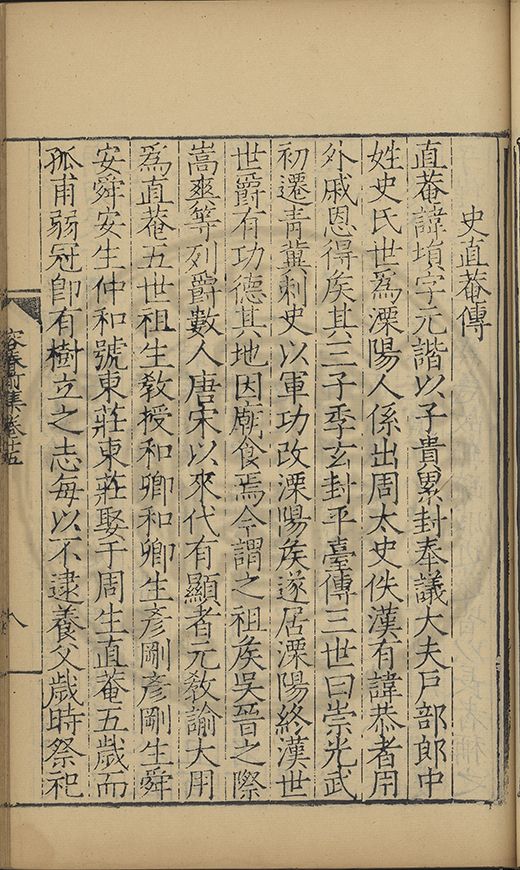 史直菴傳
直菴諱塤字元諧以子貴累封奉議大夫戶部郎中
姓史氏世為溧陽人係出周太史佚漢有諱恭者用
外戚恩得矦其三子季玄封平臺傳三世曰崇光武
初遷青冀刺史以軍功改溧陽矦遂居溧陽終漢世
世爵有功德其地因廟食焉今謂之祖矦吳晉之際
嵩爽等列爵數人唐宋以來代有顯者元教諭大用
為直菴五世祖生教授和卿和卿生彥剛彥剛生舜
安舜安生仲和號東莊東莊娶于周生直菴五歲而
孤甫弱冠卽有樹立之志每以不逮養父歲時祭祀
容春前集卷十五
八